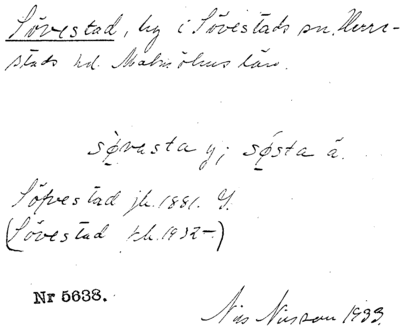 Sövestad, by i Sövestads sn. Herre-
stads hd. Malmöhus län.
sövasta y; sösta ä.
Söfvestad jb. 1881. Y.
(Sövestad tk. 1932-)
Nr 5638.
Nils Nilsson 1933.